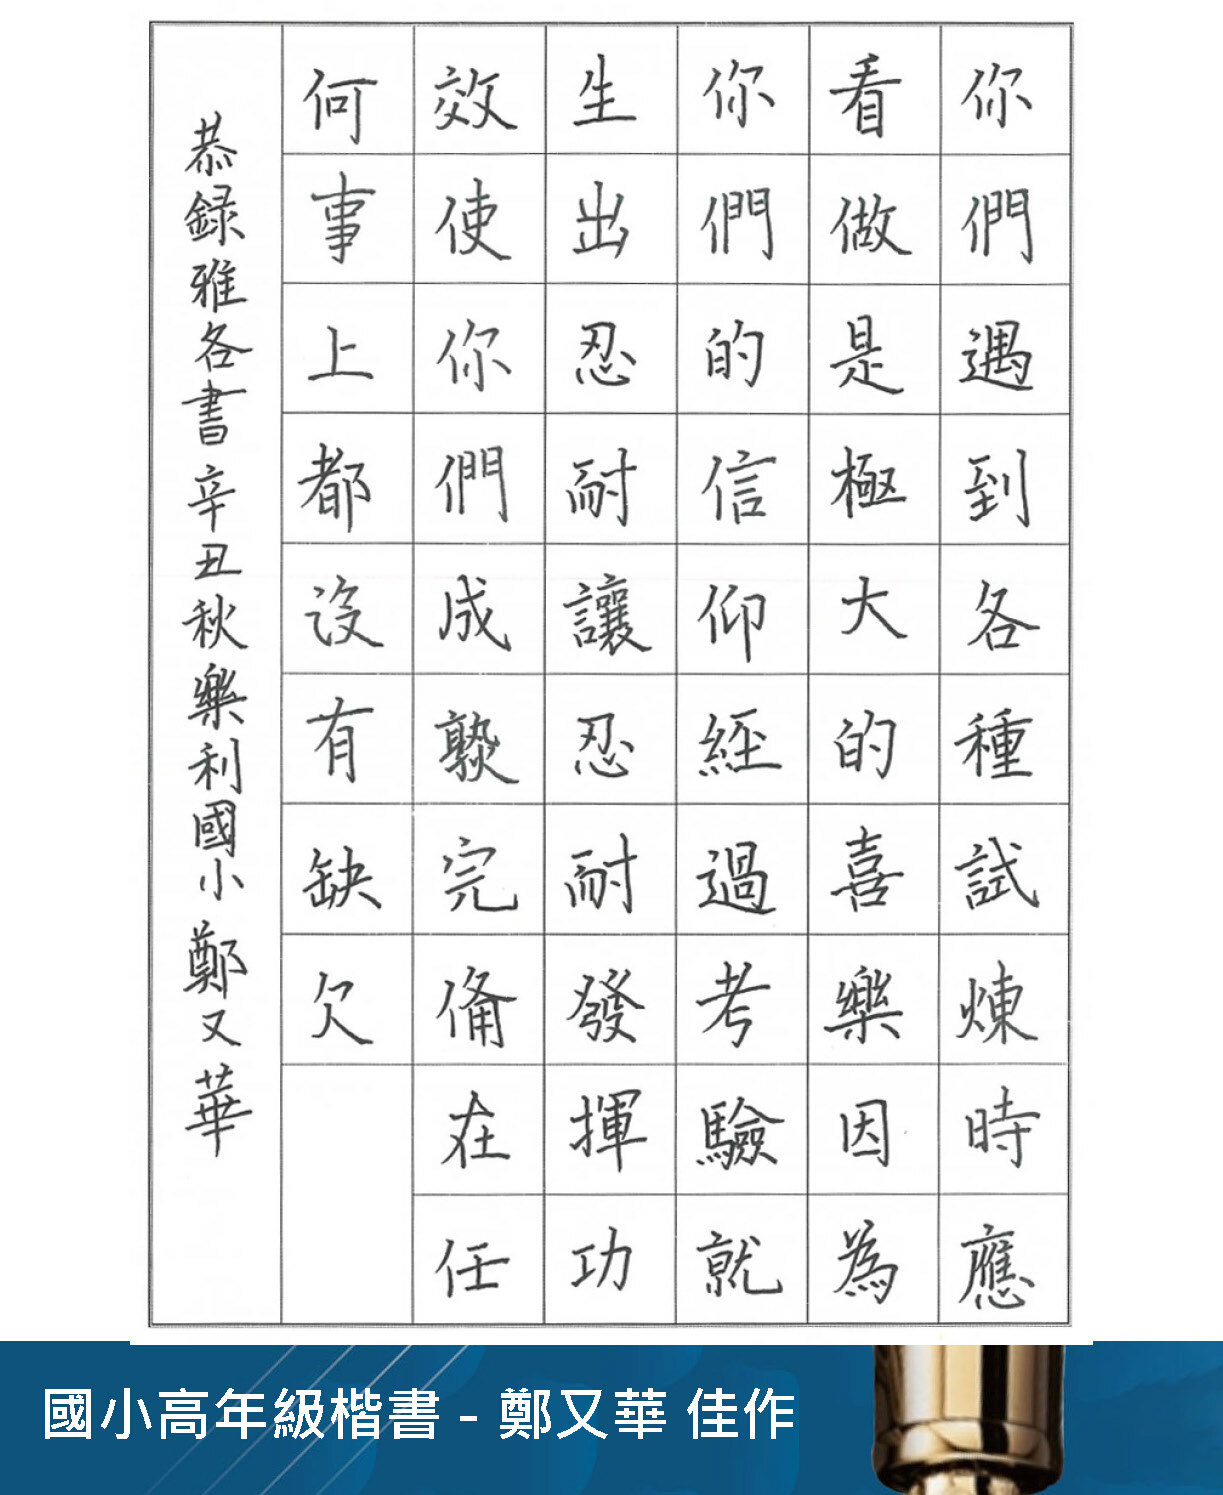 你們遇到各種試煉時應
看做是極大的喜樂因為
你們的信仰經過考驗就
生出忍耐讓忍耐發揮功
效使你們成熟完備在任
何事上都沒有缺欠
恭錄雅各書 辛丑秋樂利國小 鄭又華
國小高年級楷書 - 鄭又華 佳作